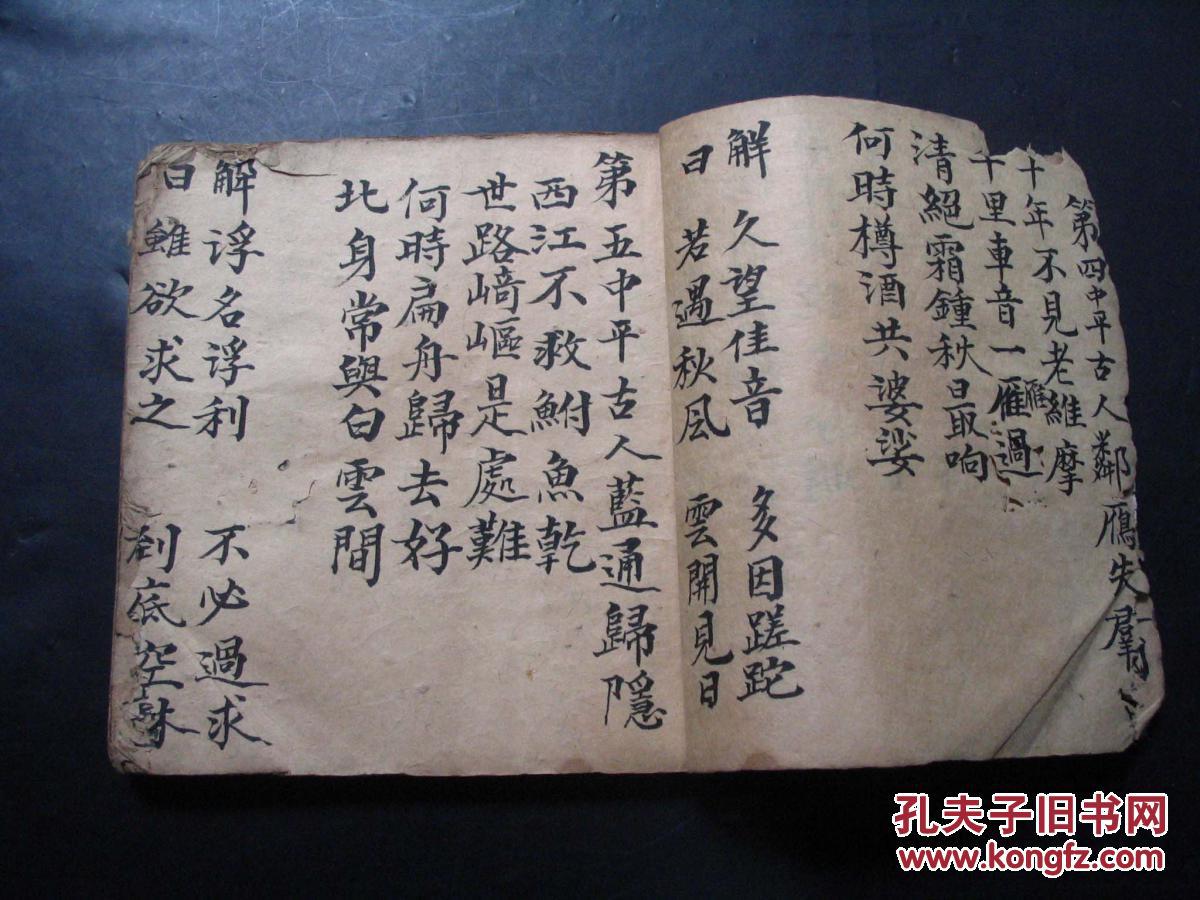 第四中平古人鄰鴈失羣
十年不見老維摩
千里車音一雁過
清絕霜鍾秋최响
何時樽酒共婆娑
解 久望佳音 多因蹉跎
曰 若過秋風 雲開見日
第五中平古人藍通歸隱
西江不救鮒魚乾
世路崎嶇是處難
何時扁舟歸去好
北身常與白雲間
解 浮名浮利 不必過求
曰 雖欲求之 到底空
孔夫子旧书网
www.kongfz.com